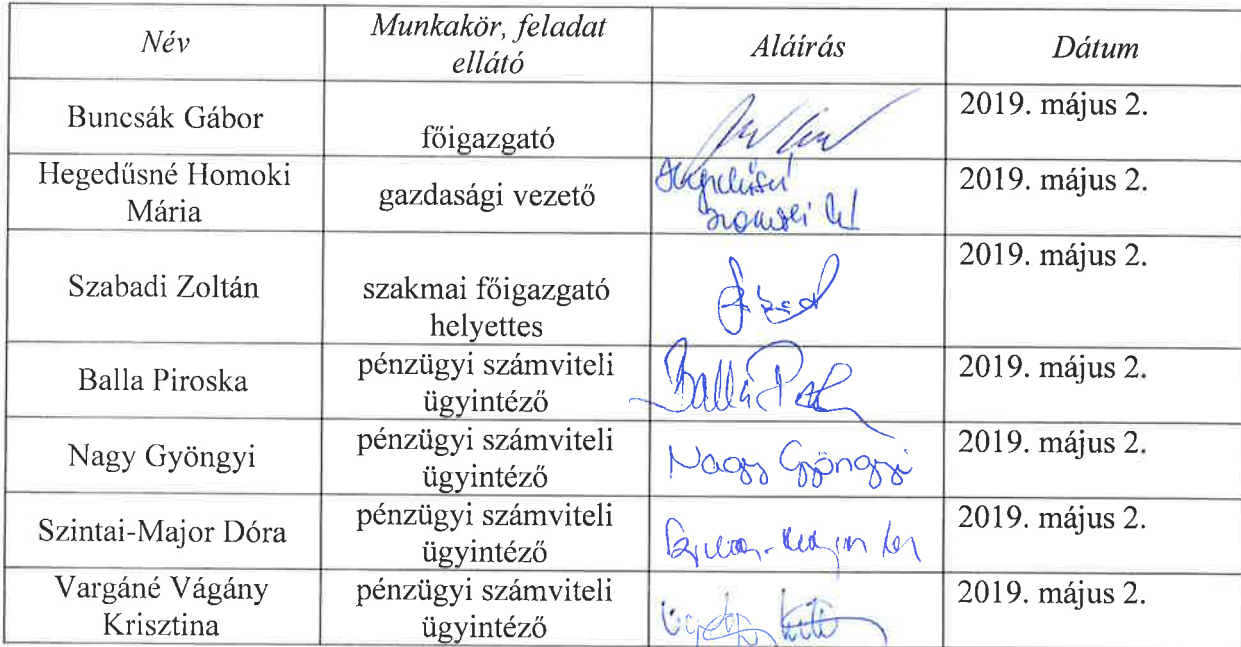 Név
Munkakör, feladat
ellátó
Aláírás
Dátum
Buncsák Gábor
főigazgató
2019. május 2.
Hegedűsné Homoki
Mária
gazdasági vezető
Hegedűsné
Homoki M
2019. május 2.
Szabadi Zoltán
szakmai főigazgató
helyettes
2019. május 2.
Balla Piroska
pénzügyi számviteli
ügyintéző
Balla
2019. május 2.
Nagy Gyöngyi
pénzügyi számviteli
ügyintéző
Nagy Gyöngyi
2019. május 2.
Szintai-Major Dóra
pénzügyi számviteli
ügyintéző
2019. május 2.
Vargáné Vágány
Krisztina
pénzügyi számviteli
ügyintéző
2019. május 2.